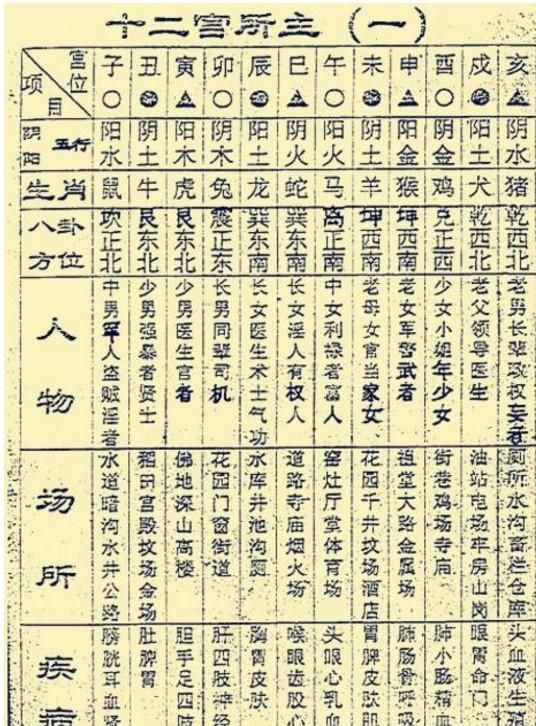 十二宫所主（一）
宫位 项目 子 丑 寅 卯 辰 巳 午 未 申 酉 戌 亥
阴阳五行 阳水 阴土 阳木 阴木 阳土 阴火 阳火 阴土 阳金 阴金 阳土 阴水
生肖 鼠 牛 虎 兔 龙 蛇 马 羊 猴 鸡 犬 猪
八卦方位 坎正北 艮东北 艮东北 震正东 巽东南 巽东南 离正南 坤西南 坤西南 兑正西 乾西北 乾西北
人物
中男罕人盗贼淫者
少男强暴者贤士
少男医生官者
长男同辈司机
长女医生术士气功
长女淫人有权人
中女利禄者富人
老母女官当家女
老女军警武者
少女小姐年少女
老父领导医生
老男长辈政权妄者
场所
水道暗沟水井公路
稻田宫殿坟场金场
佛地深山高楼
花园门窗街道
水库井池沟厕
道路寺庙烟火场
窑灶厅堂体育场
花园千井坟场酒店
祖堂大路金属场
街巷鸡场寺庙
油站电场牢房山岗
厕所水沟畜栏仓库
疾病
膀胱耳血肾
肚脾胃
胆手足四肢
肝四肢神经
胸胃皮肤
喉眼齿股心
头眼心乳血
胃脾皮肤胆
肺肠骨呼吸
肺小肠精血
眼胃命门
头血液生